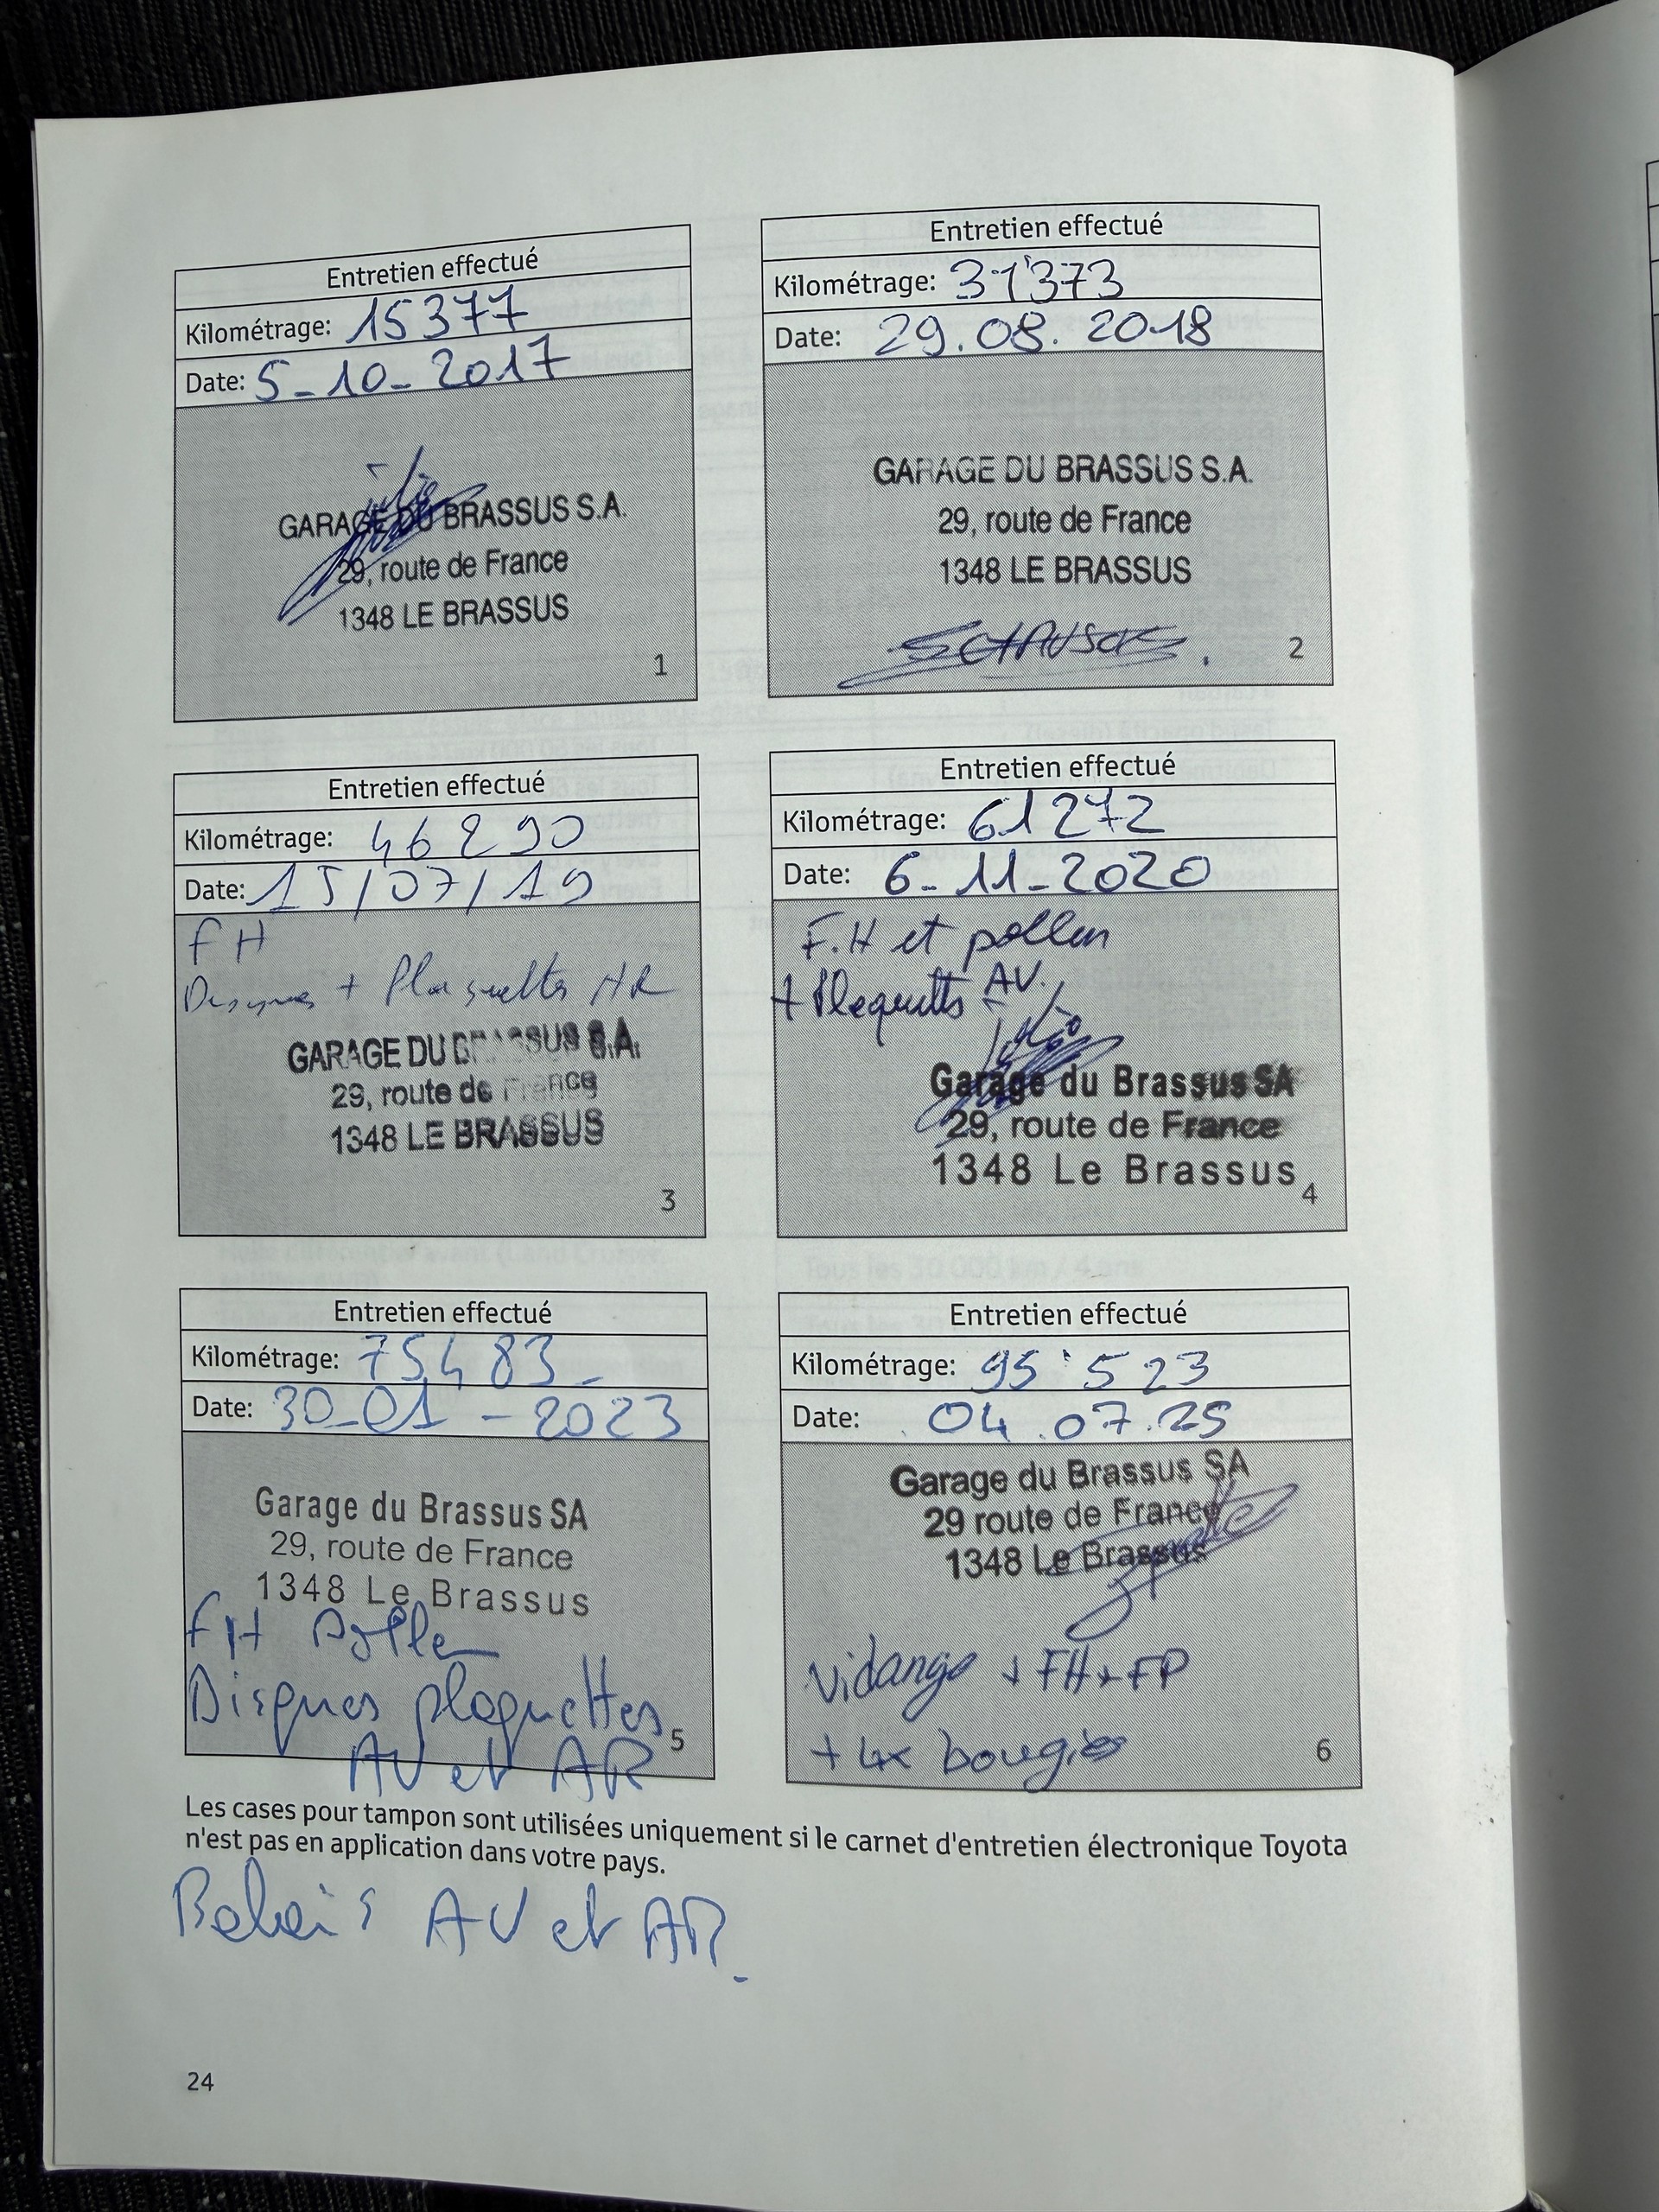 Entretien effectué
Kilométrage: 15377
Date: 5-10-2017
GARAGE DU BRASSUS S.A.
29, route de France
1348 LE BRASSUS
1
Entretien effectué
Kilométrage: 31'373
Date: 29.08.2018
GARAGE DU BRASSUS S.A.
29, route de France
1348 LE BRASSUS
2
Entretien effectué
Kilométrage: 46290
Date: 15/07/19
FH
Disques + Plaquettes AR
GARAGE DU BRASSUS S.A.
29, route de France
1348 LE BRASSUS
3
Entretien effectué
Kilométrage: 61272
Date: 6-11-2020
F.H et pollen
+ Plaquettes AV.
Garage du Brassus SA
29, route de France
1348 Le Brassus
4
Entretien effectué
Kilométrage: 75483-
Date: 30-01-2023
Garage du Brassus SA
29, route de France
1348 Le Brassus
FH Pollen
Disques plaquettes
AV et AR
5
Entretien effectué
Kilométrage: 95'523
Date: 04.07.25
Garage du Brassus SA
29 route de France
1348 Le Brassus
Vidange + FH + FP
+ 4x bougies
6
Les cases pour tampon sont utilisées uniquement si le carnet d'entretien électronique Toyota
n'est pas en application dans votre pays.
Balais AV et AR.
24